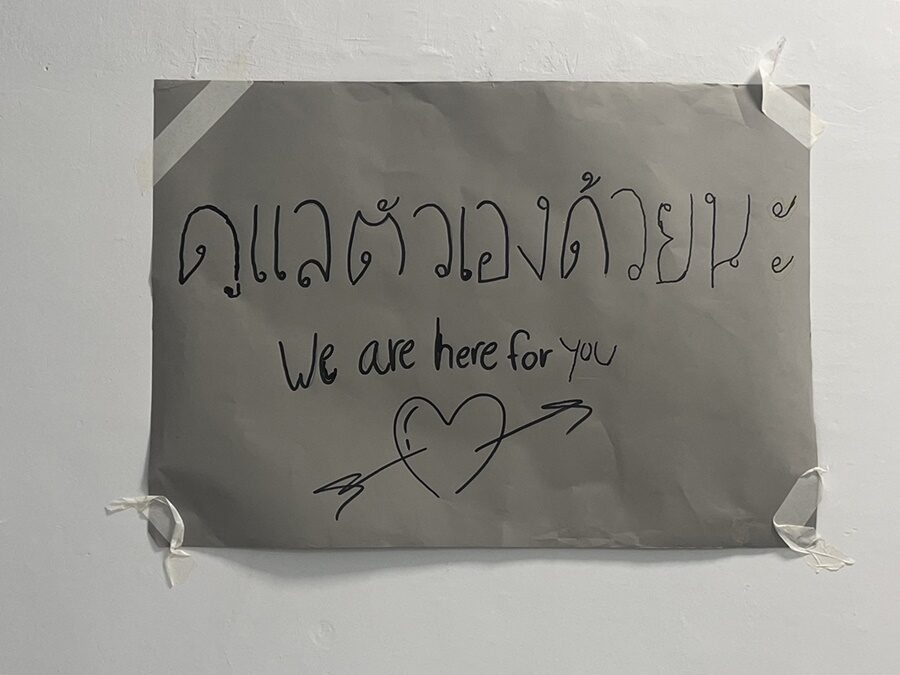 ดูแลตัวเองด้วยนะ
We are here for you